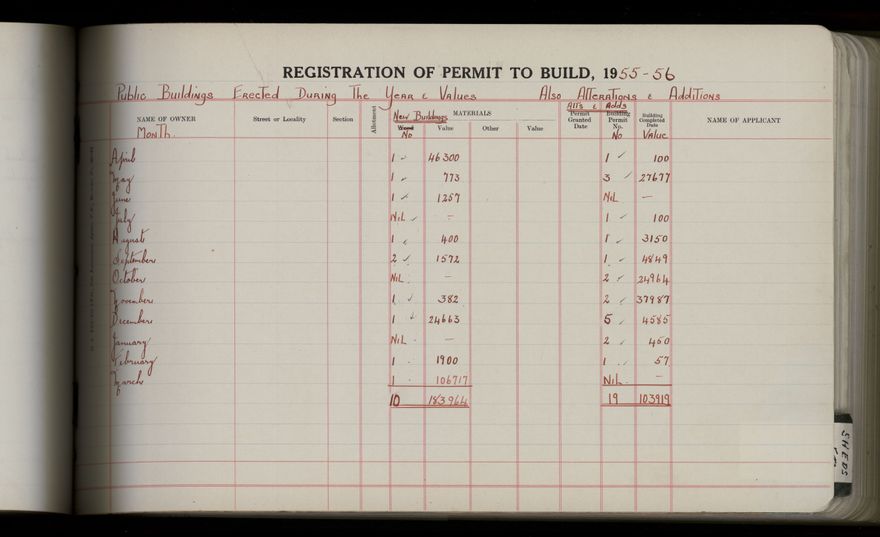 REGISTRATION OF PERMIT TO BUILD, 1955-56
Public Buildings Erected During The Year & Values Also Alterations & Additions
NAME OF OWNER Street or Locality Section Allotment New Buildings MATERIALS Wood Value Other Value Alt's & Adds Permit Granted Date Building Permit No. Building Completed Date NAME OF APPLICANT
Month. No No Value
April 1 46300 1 100
May 1 773 3 27677
June 1 1257 Nil —
July Nil — 1 100
August 1 400 1 3150
September 2 1572 1 4849
October Nil — 2 24964
November 1 382 2 37987
December 1 24663 5 4585
January Nil — 2 450
February 1 1900 1 57
March 1 106717 Nil —
10 183964 19 103919
SHEDS